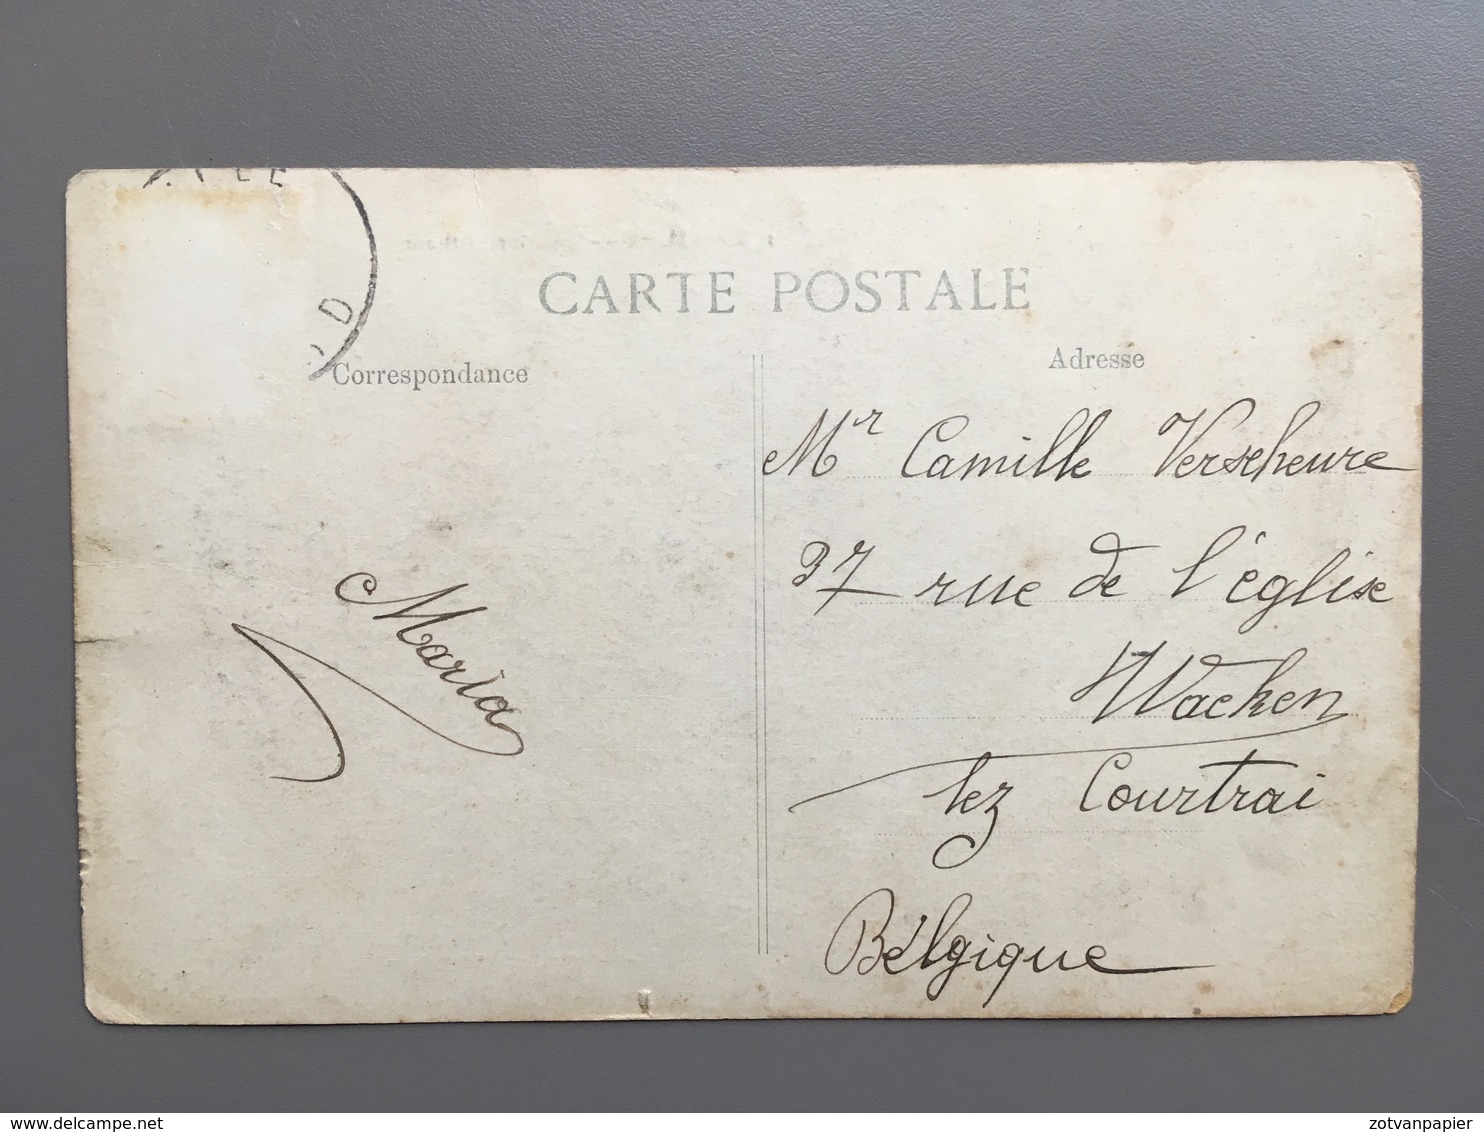 CARTE POSTALE
Correspondance
Adresse
Mr Camille Verscheure
37 rue de l'église
Wacken
lez Courtrai
Belgique
Maria
D
delcampe.net
zotvanpapier